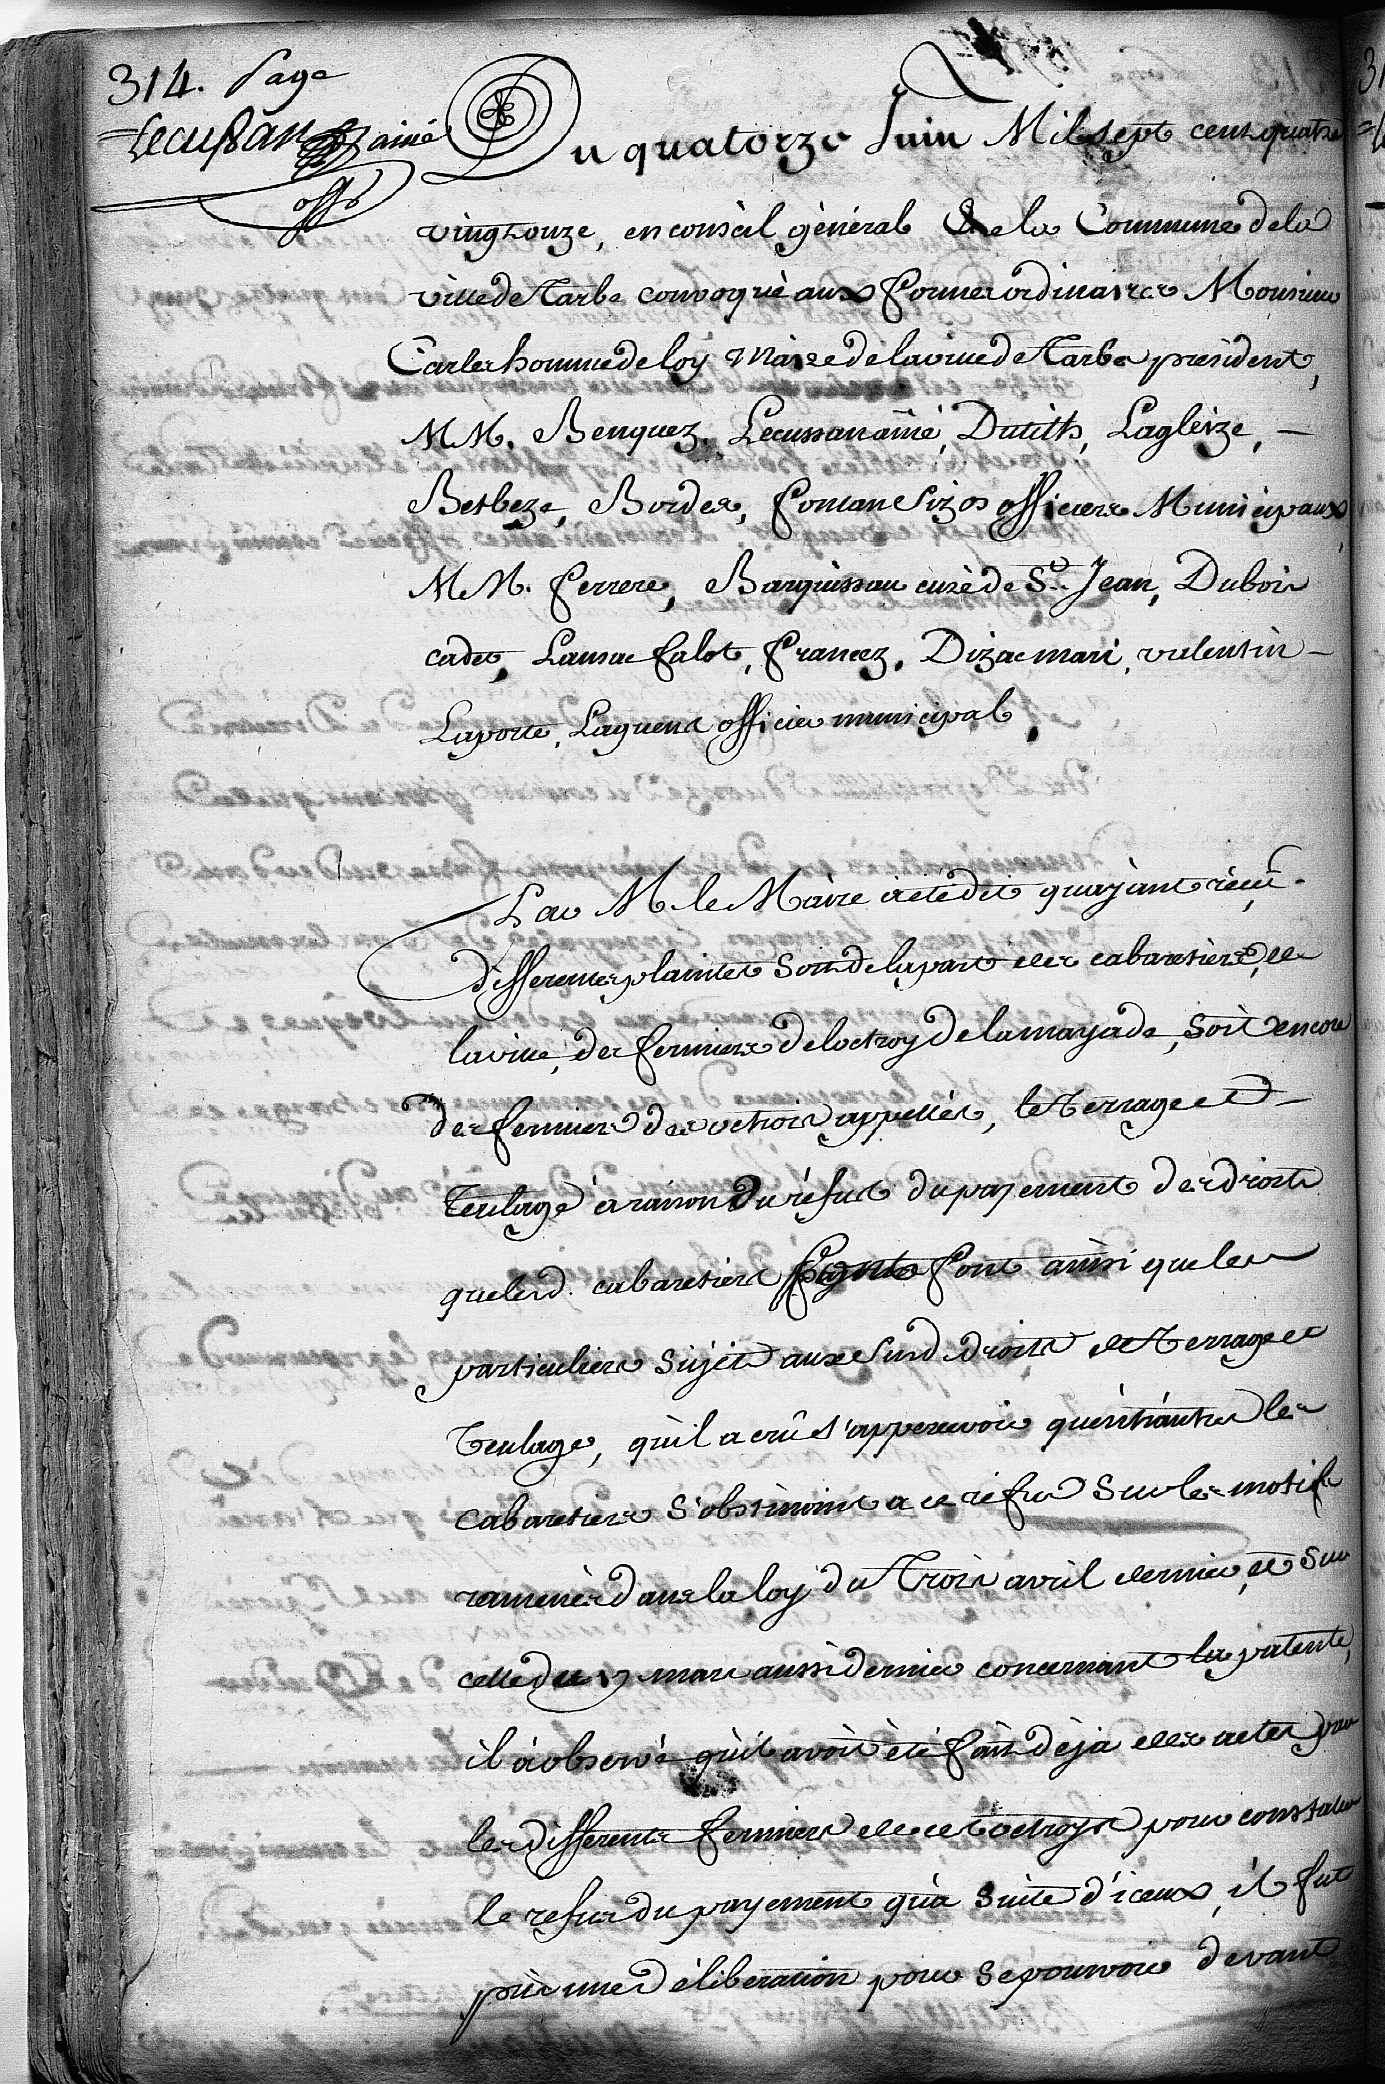 314. Page
Lecussan ainé
offr
Du quatorze Juin Mil sept cent quatre
vingt onze, en conseil géneral de la Commune de la
ville de Tarbe convoqué aux formes ordinaires Monsieur
Carles homme de loy Maire de la ville de Tarbe président,
MM. Benquez, Lecussan ainé, Dutilh, Lagleize, -
Betbeze, Bordes, Fontan Sizos officiers Municipaux
MM. Ferrere, Barquissau curé de St. Jean, Dubois
cadet, Lansac falot, Francez, Dizac mari, valentin -
Laporte, Laguens officier municipal,
Par M. le Maire a eté dit qu'ayant réçu
differentes plaintes Soit de la part des cabaretiers de
la ville, des fermiers de loctroy de la mayade, soit encore
des fermiers des octrois appellés, leterrage et -
Teulage a raison du réfus du payement des droits
que lesd. cabaretiers font ainsi que les
particuliers sujets aux Susd. droits de Terrage et
Teulage, qu'il a crû s'appercevoir que les
cabaretiers s'obstinoint a ce réfus Sur les motifs
ramenés dans la loy du Trois avril dernier, et sur
celle du 17 mars aussi dernier concernant la patente,
il a observé qu'il avoit été fait déja des actes par
les differents fermiers de cet octroys pour constater
le refus du payement qu'a suite d'iceux, il fut
pris une déliberation pour se pourvoir devant